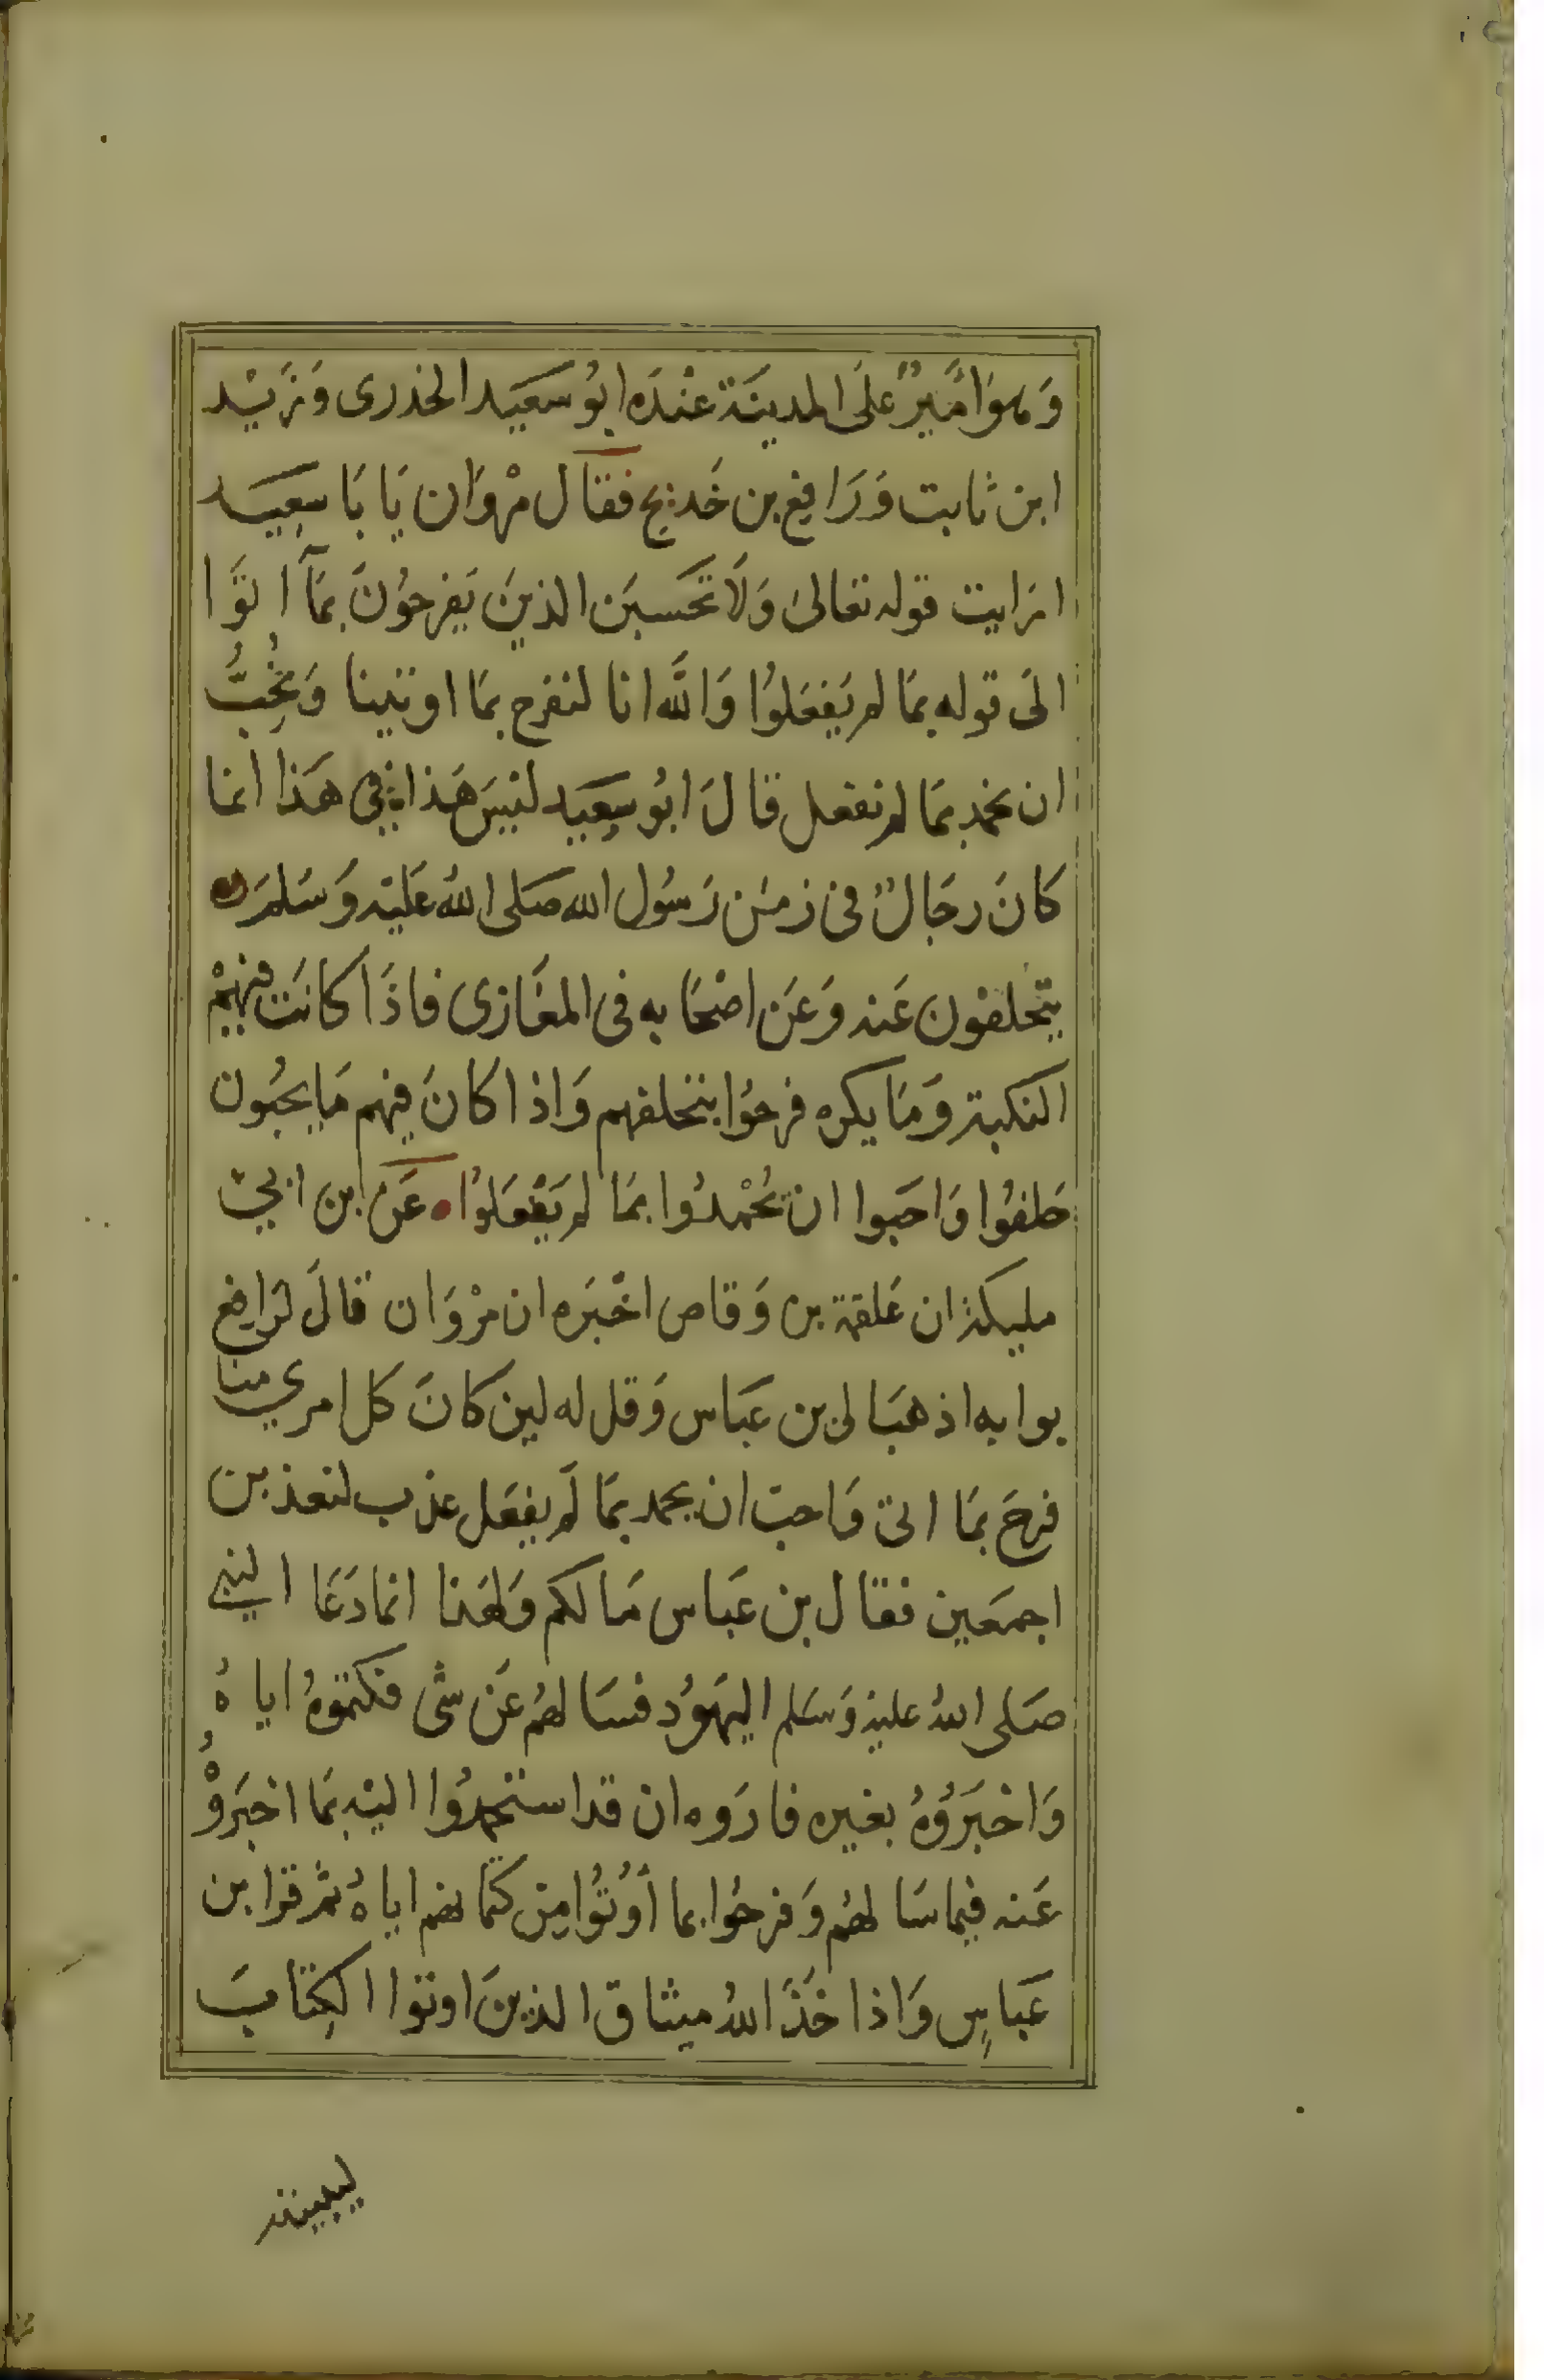 وَهوَ امَيرٌ عَلَى المدينَة عنْدَه ابُو سعَيَد الخدرى وَزَيْد
ابن ثابت وَرَافع بن خَديج فقاَل مرْوَان يَا بَا سعِيَد
ارَايت قوله تعالىَ وَلَا تحَسبَن الذينَ يَفرحُونَ بمَآ اتَوا
الىَ قوله بمَا لم يَفعَلوُا وَاللَّه انا لنفرح بمَا اوتينا وَنُحِبُّ
ان نحمد بمَا لم نفعل قالَ ابُو سعِيَد ليسَ هَذا في هَذا انما
كاَنَ رجَالٌ فى زمَن رَسُول الله صَلى اللهُ عَليْه وَسَلمَ
يتخَلفون عَنه وَعَن اصْحَابه فى المغَازى فاذَا كانَت فيهِمْ
النكبة وَمَا يكره فرحُوا بتخلفهم وَاذا كانَ فيهم مَا يحبُون
حَلفوُا وَاحَبوا ان يُحْمدُوا بمَا لم يَفْعَلوُا ه عَن ابن ابىِ
مليكة ان عَلقمة بن وَقاص اخْبَره ان مرْوَان قالَ لرَافع
بوابه اذهبَ الى بن عَبَاس وَقل له لين كانَ كل امري منا
فرحَ بمَا اتى وَاحبَ ان يحمد بمَا لَم يفعَل عذب لنعذبن
اجمَعين فقال بن عَباس مَا لكم وَلهَذا انما دَعَا النبى
صَلى اللهُ عليه وَسَلم اليهَوُد فسَالهُم عَن شَى فكتموُهُ اياهُ
وَاخبَرُوهُ بغيره فارَوه ان قد استحمدُوا اليْه بمَا اخبَرَوْهُ
عَنه فيما سَالهُم وَفرحُوا بما أوُتُوا مِن كتمَانهم اياهُ ثم قرا بن
عَباسِ وَاذ اخَذَ اللهُ ميثاق الذينَ اوتوا الكِتَابَ
ليبيننه